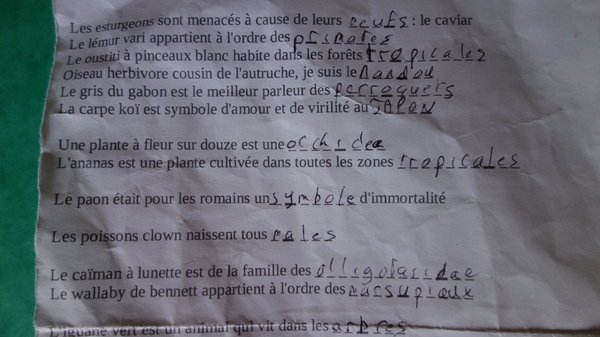 Les esturgeons sont menacés à cause de leurs œufs : le caviar
Le lémur vari appartient à l'ordre des primates
Le oustiti à pinceaux blanc habite dans les forêts tropicales
Oiseau herbivore cousin de l'autruche, je suis le Nandou
Le gris du gabon est le meilleur parleur des perroquets
La carpe koï est symbole d'amour et de virilité au JAPON
Une plante à fleur sur douze est une orchidee
L'ananas est une plante cultivée dans toutes les zones tropicales
Le paon était pour les romains un symbole d'immortalité
Les poissons clown naissent tous males
Le caïman à lunette est de la famille des alligotaridae
Le wallaby de bennett appartient à l'ordre des marsupiaux
L'iguane vert est un animal qui vit dans les arbres